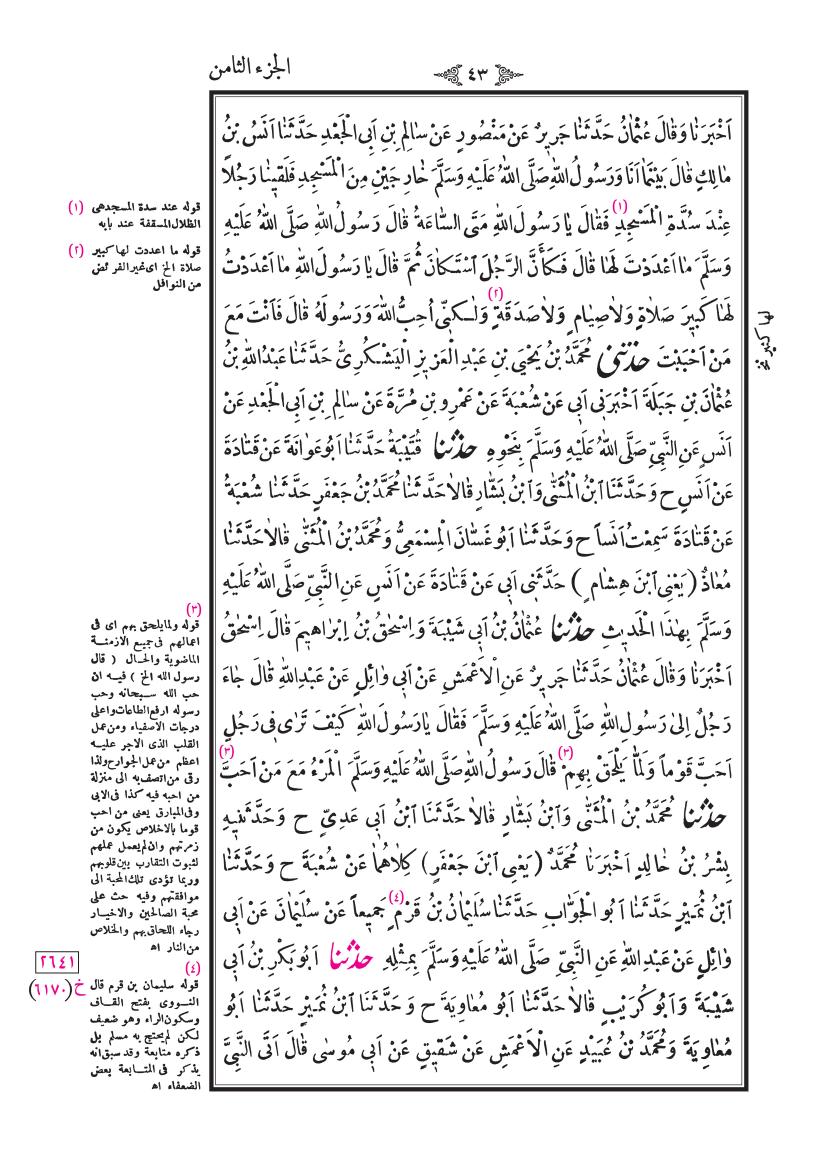 ٤٣
الجزء الثامن
اَخْبَرَنَا وَقَالَ عُثْمَانُ حَدَّثَنَا جَرِيرٌ عَنْ مَنْصُورٍ عَنْ سَالِمِ بْنِ اَبِى الْجَعْدِ حَدَّثَنَا اَنَسُ بْنُ
مَالِكٍ قَالَ بَيْنَمَا اَنَا وَرَسُولُ اللهِ صَلَّى اللهُ عَلَيْهِ وَسَلَّمَ خَارِجَيْنِ مِنَ الْمَسْجِدِ فَلَقِينَا رَجُلاً
عِنْدَ سُدَّةِ الْمَسْجِدِ (١) فَقَالَ يَا رَسُولَ اللهِ مَتَى السَّاعَةُ قَالَ رَسُولُ اللهِ صَلَّى اللهُ عَلَيْهِ
وَسَلَّمَ مَا اَعْدَدْتَ لَهَا قَالَ فَكَأَنَّ الرَّجُلَ اسْتَكَانَ ثُمَّ قَالَ يَا رَسُولَ اللهِ مَا اَعْدَدْتُ
لَهَا كَبِيرَ صَلَاةٍ وَلَا صِيَامٍ وَلَا صَدَقَةٍ (٢) وَلٰكِنِّى اُحِبُّ اللهَ وَرَسُولَهُ قَالَ فَاَنْتَ مَعَ
مَنْ اَحْبَبْتَ حَدَّثَنِى مُحَمَّدُ بْنُ يَحْيَى بْنِ عَبْدِ الْعَزِيزِ الْيَشْكُرِىُّ حَدَّثَنَا عَبْدُ اللهِ بْنُ
عُثْمَانَ بْنِ جَبَلَةَ اَخْبَرَنِى اَبِى عَنْ شُعْبَةَ عَنْ عَمْرِو بْنِ مُرَّةَ عَنْ سَالِمِ بْنِ اَبِى الْجَعْدِ عَنْ
اَنَسٍ عَنِ النَّبِىِّ صَلَّى اللهُ عَلَيْهِ وَسَلَّمَ بِنَحْوِهِ حَدَّثَنَا قُتَيْبَةُ حَدَّثَنَا اَبُو عَوَانَةَ عَنْ قَتَادَةَ
عَنْ اَنَسٍ ح وَحَدَّثَنَا ابْنُ الْمُثَنَّى وَابْنُ بَشَّارٍ قَالَا حَدَّثَنَا مُحَمَّدُ بْنُ جَعْفَرٍ حَدَّثَنَا شُعْبَةُ
عَنْ قَتَادَةَ سَمِعْتُ اَنَساً ح وَحَدَّثَنَا اَبُو غَسَّانَ الْمِسْمَعِىُّ وَمُحَمَّدُ بْنُ الْمُثَنَّى قَالَا حَدَّثَنَا
مُعَاذٌ (يَعْنِى ابْنَ هِشَامٍ) حَدَّثَنِى اَبِى عَنْ قَتَادَةَ عَنْ اَنَسٍ عَنِ النَّبِىِّ صَلَّى اللهُ عَلَيْهِ
وَسَلَّمَ بِهٰذَا الْحَدِيثِ حَدَّثَنَا عُثْمَانُ بْنُ اَبِى شَيْبَةَ وَاِسْحٰقُ بْنُ اِبْرَاهِيمَ قَالَ اِسْحٰقُ
اَخْبَرَنَا وَقَالَ عُثْمَانُ حَدَّثَنَا جَرِيرٌ عَنِ الْاَعْمَشِ عَنْ اَبِى وَائِلٍ عَنْ عَبْدِ اللهِ قَالَ جَاءَ
رَجُلٌ اِلَى رَسُولِ اللهِ صَلَّى اللهُ عَلَيْهِ وَسَلَّمَ فَقَالَ يَا رَسُولَ اللهِ كَيْفَ تَرَى فِى رَجُلٍ
اَحَبَّ قَوْماً وَلَمَّا يَلْحَقْ بِهِمْ (٣) قَالَ رَسُولُ اللهِ صَلَّى اللهُ عَلَيْهِ وَسَلَّمَ الْمَرْءُ مَعَ مَنْ اَحَبَّ (٣)
حَدَّثَنَا مُحَمَّدُ بْنُ الْمُثَنَّى وَابْنُ بَشَّارٍ قَالَا حَدَّثَنَا ابْنُ اَبِى عَدِىٍّ ح وَحَدَّثَنِيهِ
بِشْرُ بْنُ خَالِدٍ اَخْبَرَنَا مُحَمَّدٌ (يَعْنِى ابْنَ جَعْفَرٍ) كِلَاهُمَا عَنْ شُعْبَةَ ح وَحَدَّثَنَا
ابْنُ نُمَيْرٍ حَدَّثَنَا اَبُو الْجَوَّابِ حَدَّثَنَا سُلَيْمَانُ بْنُ قَرْمٍ (٤) جَمِيعاً عَنْ سُلَيْمَانَ عَنْ اَبِى
وَائِلٍ عَنْ عَبْدِ اللهِ عَنِ النَّبِىِّ صَلَّى اللهُ عَلَيْهِ وَسَلَّمَ بِمِثْلِهِ حَدَّثَنَا اَبُو بَكْرِ بْنُ اَبِى
شَيْبَةَ وَاَبُو كُرَيْبٍ قَالَا حَدَّثَنَا اَبُو مُعَاوِيَةَ ح وَحَدَّثَنَا ابْنُ نُمَيْرٍ حَدَّثَنَا اَبُو
مُعَاوِيَةَ وَمُحَمَّدُ بْنُ عُبَيْدٍ عَنِ الْاَعْمَشِ عَنْ شَقِيقٍ عَنْ اَبِى مُوسَى قَالَ اَتَى النَّبِىَّ
لها كثير نخ
(١) قوله عند سدة المسجد هى
الظلال المسقفة عند بابه
(٢) قوله ما اعددت لها كبير
صلاة الخ اى غير الفرائض
من النوافل
(٣)
قوله ولما يلحق بهم اى فى
اعمالهم فى جميع الازمنة
الماضوية والحال (قال
رسول الله الخ) فيه ان
حب الله سبحانه وحب
رسوله ارفع الطاعات واعلى
درجات الاصفياء ومن عمل
القلب الذى الاجر عليه
اعظم من عمل الجوارح ولذا
رقى من اتصف به الى منزلة
من احبه فيه كذا فى الابى
وفى المبارق يعنى من احب
قوما بالاخلاص يكون من
زمرتهم وان لم يعمل عملهم
لثبوت التقارب بين قلوبهم
وربما تؤدى تلك المحبة الى
موافقتهم وفيه حث على
محبة الصالحين والاخيار
رجاء اللحاق بهم والخلاص
من النار اه
(٤)
قوله سليمان بن قرم قال
النووى بفتح القاف
وسكون الراء وهو ضعيف
لكن لم يحتج به مسلم بل
ذكره متابعة وقد سبق انه
يذكر فى المتابعة بعض
الضعفاء اه
٢٦٤١
خ (٦١٧٠)